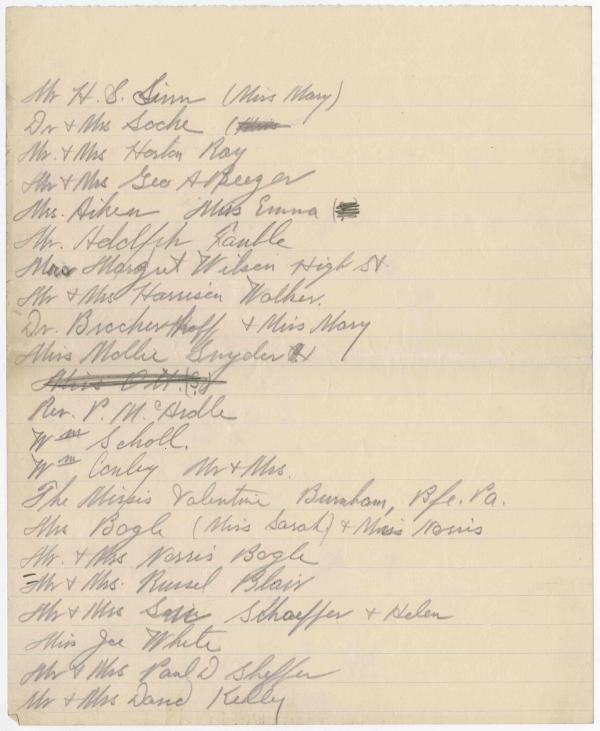 Mr H. S. Linn (Miss Mary)
Dr & Mrs Locke (Miss
Mr. & Mrs Horton Ray
Mr & Mrs Geo A
Mrs. Aiken Miss Emma
Mr. Adolph Fauble
Margret Wilson High St.
Mr & Mrs Harrison Walker.
Dr. Brockerhoff & Miss Mary
Miss Mollie Snyder
Miss
Rev. P. McArdle
Wm Scholl.
Wm Conley Mr & Mrs.
The Missis Valentine Burnham, Bfe. Pa.
Mrs Bogle (Miss Sarah) & Miss
Mr. & Mrs Norris Bogle
Mr & Mrs. Russel Blair
Mr & Mrs Schaeffer & Helen
Miss Joe White
Mr & Mrs Paul D Sheffer
Mr & Mrs David Kelly